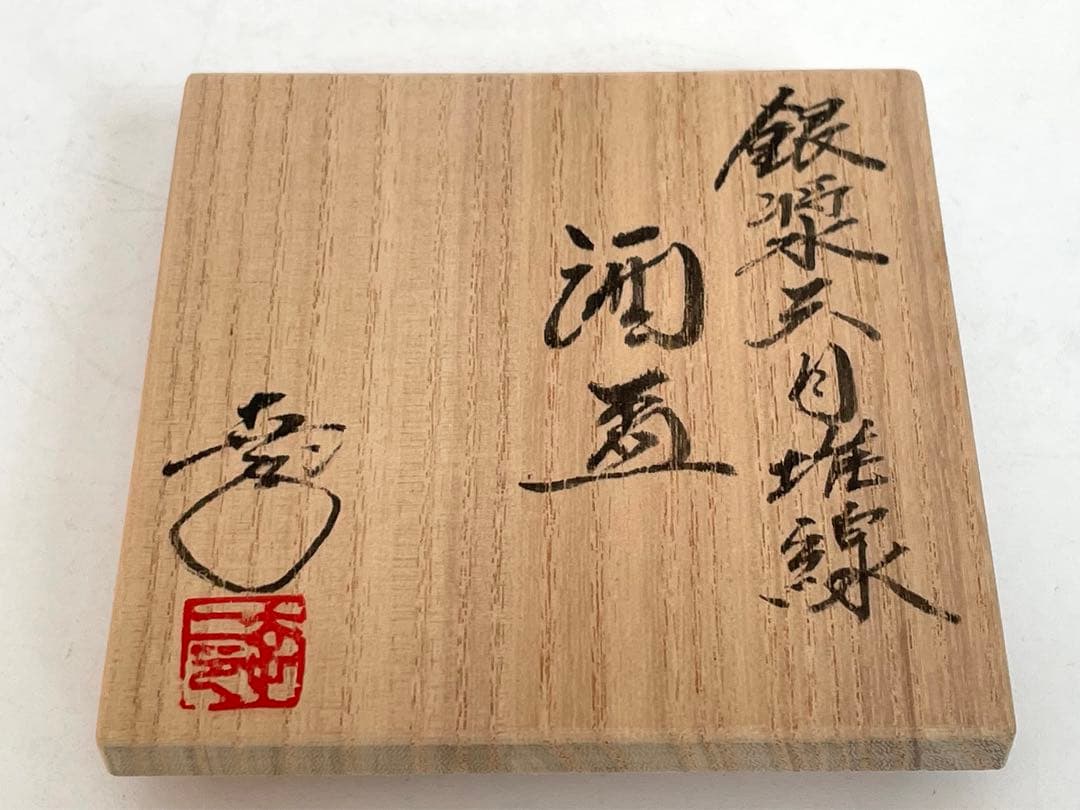 銀漿天目堆線
酒盃